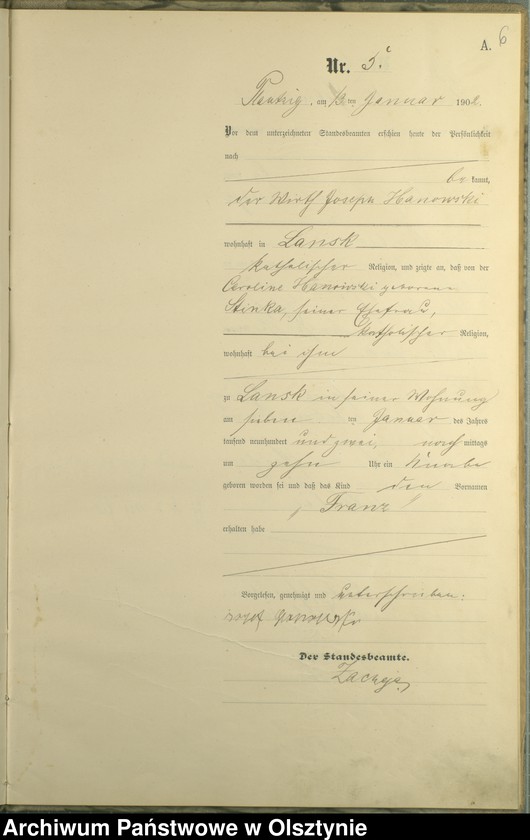 A. 6
Nr. 5.
am 13 ten Januar 1902.
Vor dem unterzeichneten Standesbeamten erschien heute der Persönlichkeit
nach
be kannt,
der Wirth Joseph Hanowski
wohnhaft in Lansk
katholischer Religion, und zeigte an, daß von der
Caroline Hanowski geborene
Stinka, seiner Ehefrau,
katholischer Religion,
wohnhaft bei ihm
zu Lansk in seiner Wohnung
am sieben ten Januar des Jahres
tausend neunhundert und zwei, nach mittags
um zehn Uhr ein Knabe
geboren worden sei und daß das Kind den Vornamen
„Franz"
erhalten habe
Vorgelesen, genehmigt und unterschrieben:
Der Standesbeamte.
Archiwum Państwowe w Olsztynie